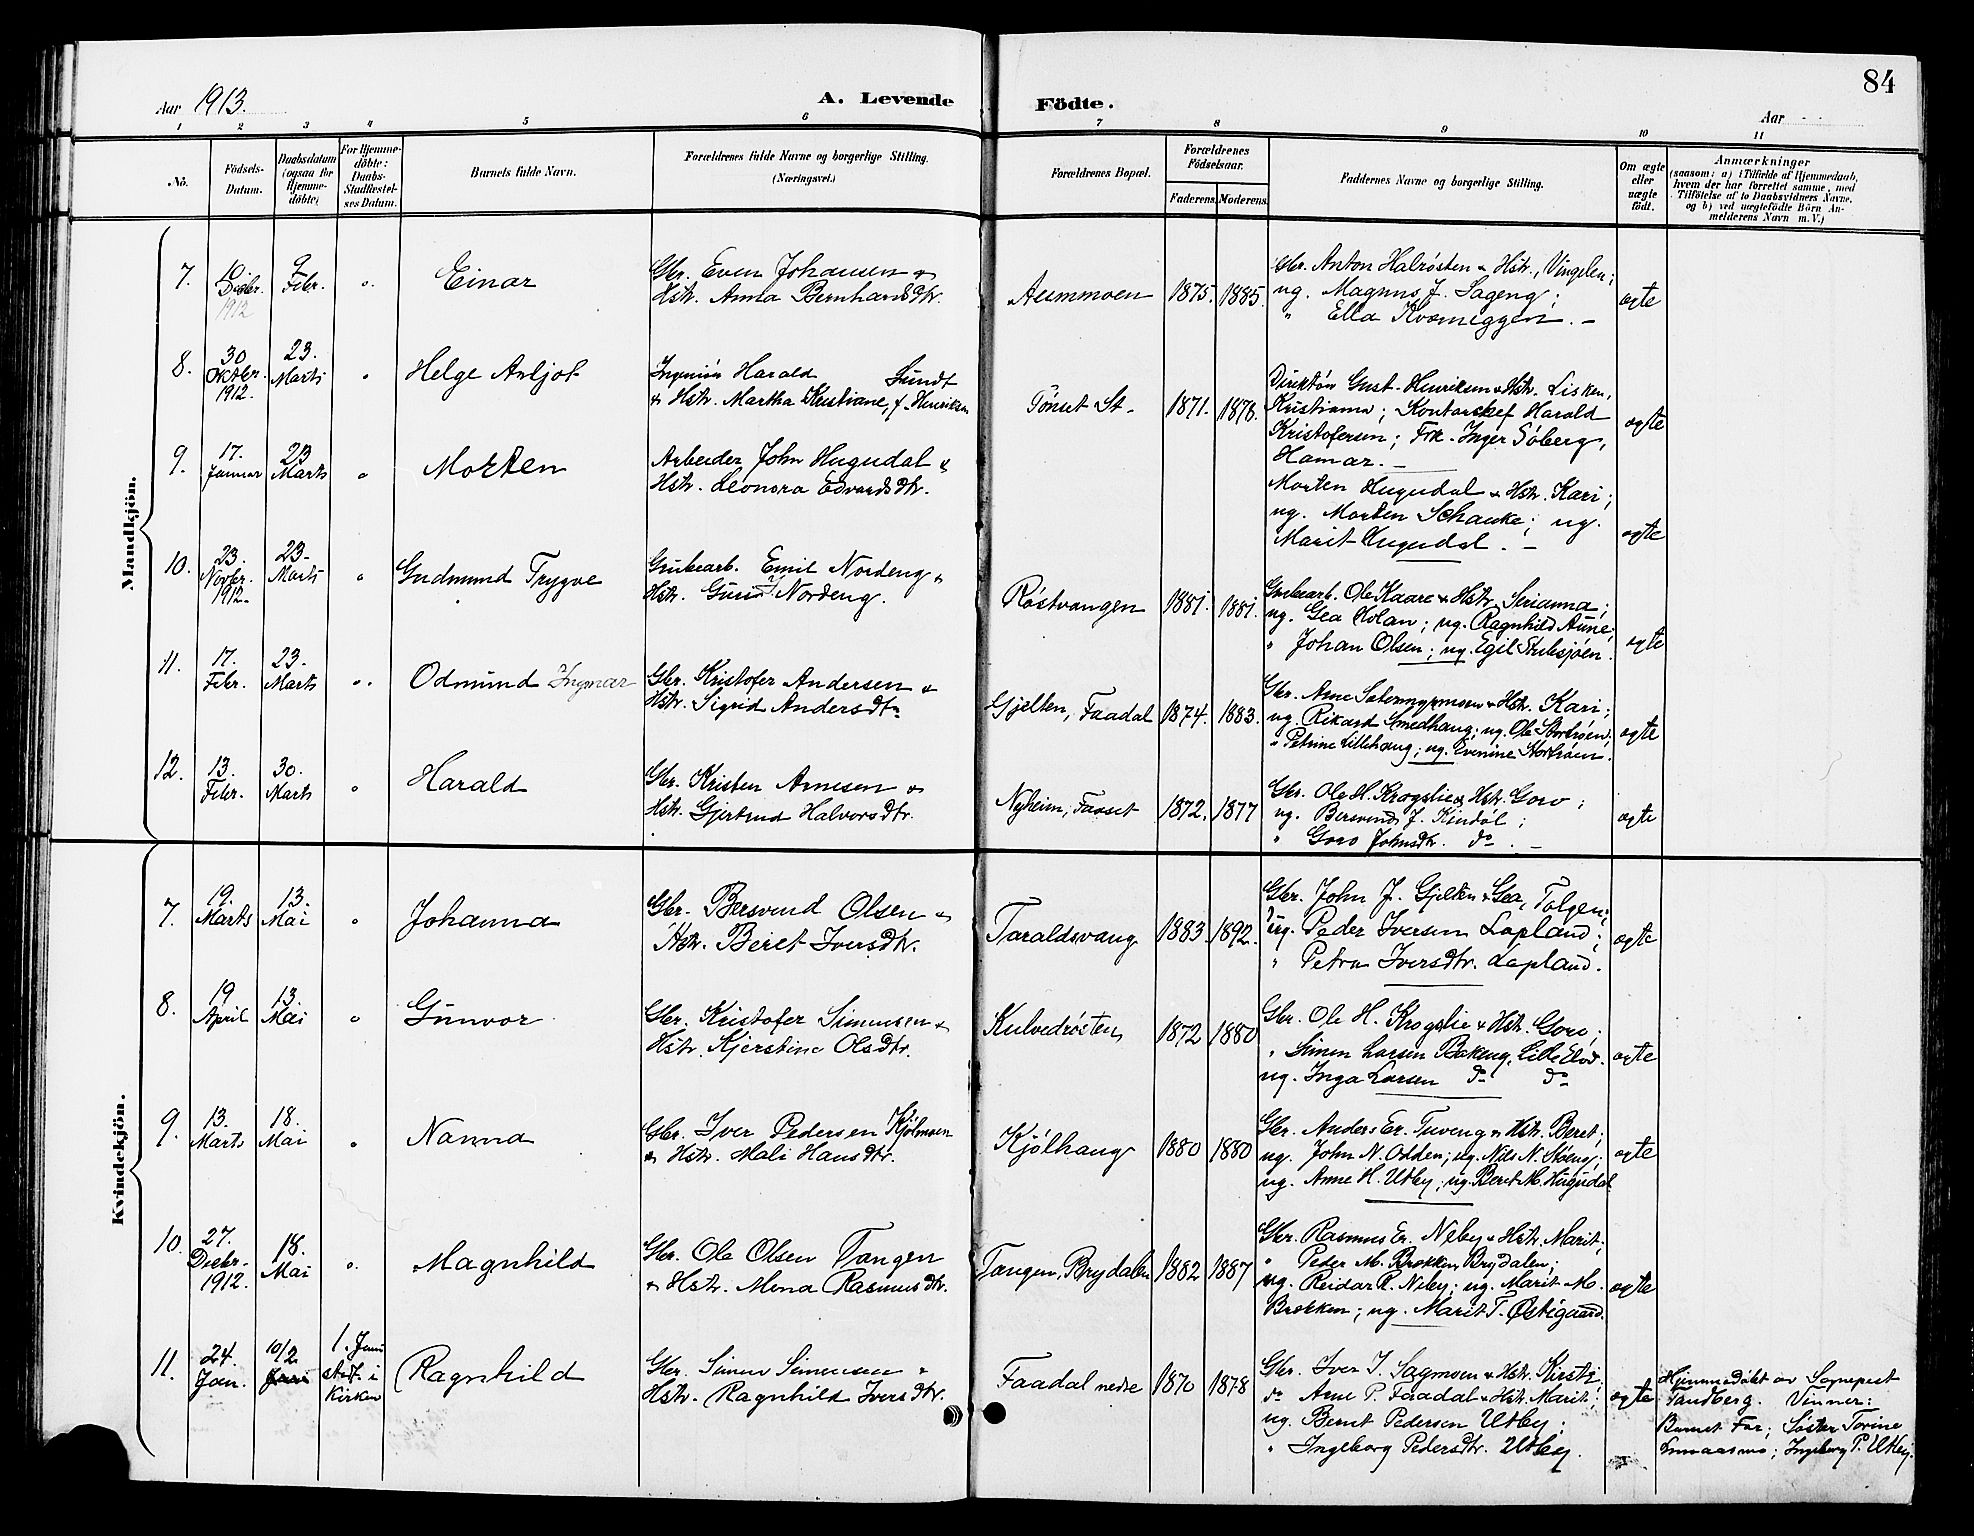 84
Aar 1913.
A. Levende Födte.
Aar
1 2 3 4 5 6 7 8 9 10 11
No.
Födsels-Datum.
Daabsdatum (ogsaa for Hjemme-döbte)
For Hjemme-döbte: Daabs-Stadfæstel-ses Datum.
Barnets fulde Navn.
Forældrenes fulde Navne og borgerlige Stilling.
(Næringsvei.)
Forældrenes Bopæl.
Forældrenes Födselsaar.
Faderens. Moderens.
Faddernes Navne og borgerlige Stilling.
Om ægte eller uægte födt.
Anmærkninger
(saasom: a) i Tilfælde af Hjemmedaab,
hvem der har forrettet samme, med
Tilföielse af to Daabsvidners Navne,
og b) ved uægtefödte Börn An-
melderens Navn m. V.)
Mandkjön.
7. 10 Decbr. 1912 9 Febr. " Einar
Gbr. Even Johansen &
Hstr. Anna Bernhardsdtr.
Aummoen 1875. 1885.
Gbr. Anton Halrøsten & Hstr., Vingelen;
ug. Magnus J. Sageng;
" Ella Kvæmeggen. -
ægte
8. 30 Oktbr. 1912. 23. Marts " Helge Arljot
Ingeniør Harald Sundt
& Hstr. Martha Kristiane, f. Henriksen
Tönset St. 1871. 1878.
Direktör Gust. Henriksen & Hstr. Lisken,
Kristiania; Kontorchef Harald
Kristofersen; Frk. Inger Söberg,
Hamar. -
ægte
9. 17. Januar 23 Marts " Morten
Arbeider John Hugudal &
Hstr. Leonora Edvardsdtr.
Morten Hugudal & Hstr. Kari;
ug. Morten Schanke; ug.
Marit Hugudal. -
ægte
10. 23. Novbr. 1912. 23. Marts " Gudmund Trygve
Grubearb. Emil Nordeng &
Hstr. Nordeng.
Röstvangen 1881. 1881.
Grubearb. Ole Kaare & Hstr. Serianna;
ug. Gea Holan; ug. Ragnhild Aune;
" Johan Olsen; ug. Egil Stubsjøen.
ægte
11. 17. Febr. 23. Marts " Odmund Ingmar
Gbr. Kristofer Andersen &
Hstr. Sigrid Andersdtr
Gjelten, Faadal 1874. 1883.
Gbr. Arne & Hstr. Kari;
ug. Rikard Smedhaug; ug. Ole Stortrøen;
" Petrine Lillehaug; ug. Evenine Stortrøen.
ægte
12. 13. Febr. 30. Marts " Harald
Gbr. Kristen Arnesen &
Hstr. Gjertrud Halvorsdtr.
Nyheim, Faaset 1872. 1877
Gbr. Ole H. Krogslie & Hstr. Goro;
ug. Bersvend J. Kindöl;
" Goro Johnsdtr. do. -
ægte
Kvindekjön.
7. 19. Marts 13. Mai " Johanna
Gbr. Bersvend Olsen &
Hstr. Beret Iversdtr.
Taraldsvang 1883. 1892.
Gbr. John J. Gjelten & Gea, Tolgen;
ug. Peder Iversen Lapland;
" Petra Iversdtr. Lapland.
ægte
8. 19 April 13. Mai " Gunvor
Gbr. Kristofer Simensen &
Hstr. Kjerstine Olsdtr.
Kulvedrösten 1872 1880
Gbr. Ole H. Krogslie & Hstr. Goro;
" Simen Larsen Bakeng, Lille Elvd.
ug. Inga Larsen do do
ægte
9. 13. Marts 18. Mai " Nanna
Gbr. Iver Pedersen Kjölmoen
& Hstr. Mali Hansdtr.
Kjölhaug 1880 1880
Gbr. Anders Er. Tuveng & Hstr. Beret;
ug. John N. Odden; ug. Nils N. Stöeng;
ug. Anne H. Utby; ug. Beret M. Hugudal
ægte
10. 27. Decbr. 1912. 18. Mai " Magnhild
Gbr. Ole Olsen Tangen
& Hstr. Mena Rasmusdtr.
Tangen, Brydalen 1882 1887
Gbr. Rasmus Er. Neby & Hstr. Marit;
" Peder M. Brokken, Brydalen;
ug. Reidar R. Neby; ug. Marit M.
Brokken; ug. Marit T. Østigaard.
ægte
11. 24. Jan. 10/2 1. Juni stadf. i Kirken Ragnhild
Gbr. Simen Simensen &
Hstr. Ragnhild Iversdtr.
Faadal nedre 1870 1878
Gbr. Iver I. Sagmoen & Hstr. Kirsti;
do Arne P. Faadal & Hstr. Marit;
ug. Bernt Pedersen Utby;
" Ingeborg Pedersdtr. Utby.
ægte
Hjemmedöbt av Sognepr.
Tandberg. Vinner:
Barnets Far; Söster Torine
Ingeborg P. Utby.